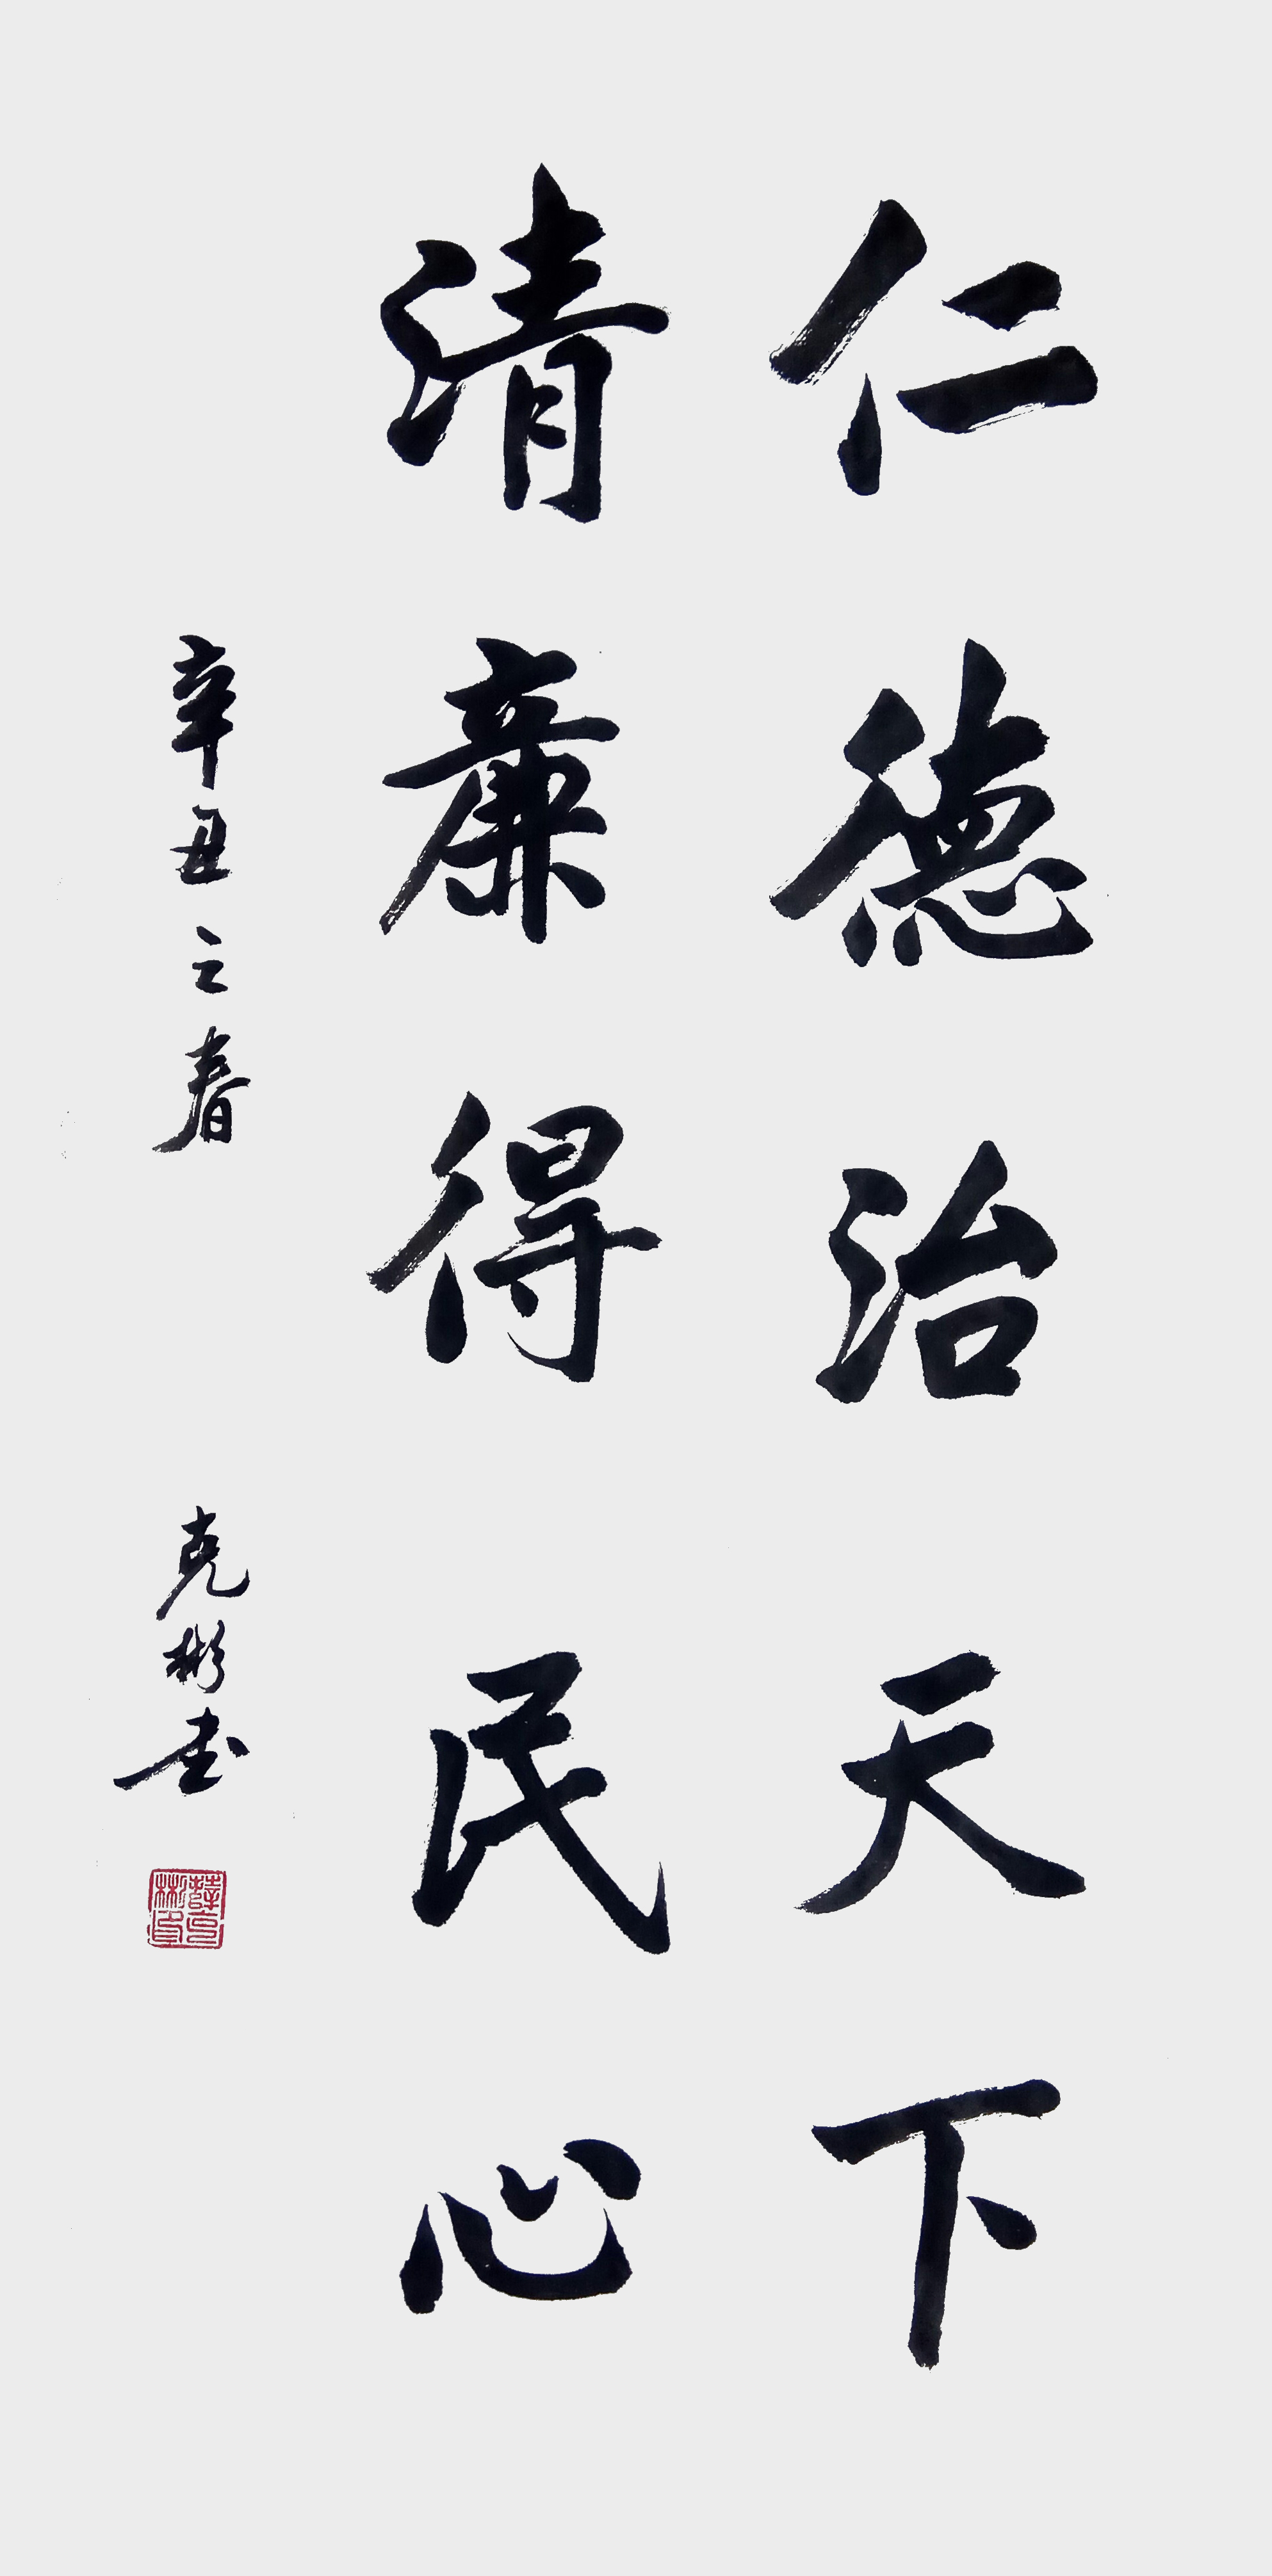 仁德治天下
清廉得民心
辛丑之春 克彬书
薛克彬印